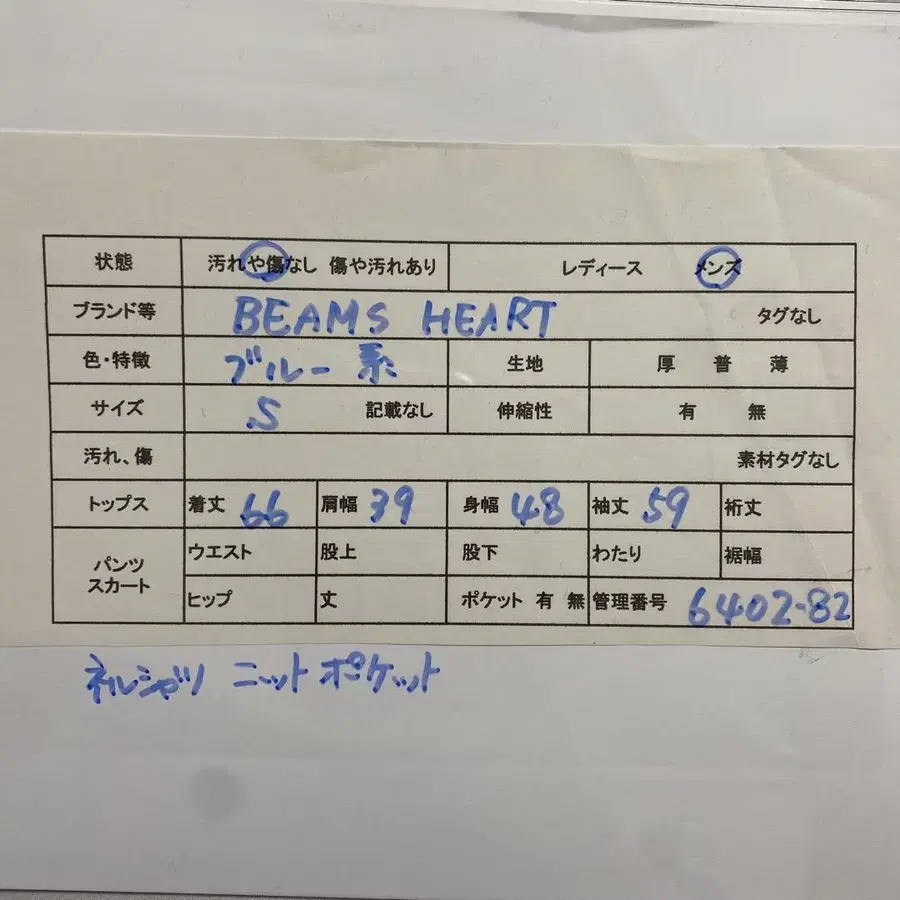 状態 汚れや傷なし 傷や汚れあり レディース メンズ
ブランド等 BEAMS HEART タグなし
色・特徴 ブルー系 生地 厚 普 薄
サイズ S 記載なし 伸縮性 有 無
汚れ、傷 素材タグなし
トップス 着丈 66 肩幅 39 身幅 48 袖丈 59 裄丈
パンツ スカート ウエスト 股上 股下 わたり 裾幅
ヒップ 丈 ポケット 有 無 管理番号 6402-82
ネルシャツ ニットポケット